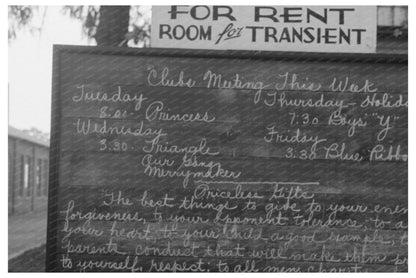 FOR RENT
ROOM for TRANSIENT
"Clubs Meeting This Week
Tuesday
8:00 - Princess
Wednesday
3:30 - Triangle
Our Gang
Merrymaker
Thursday - Holiday
7:30 Boys "Y"
Friday
3:30 Blue Ribbo
Priceless Gifts
"The best things to give to your ene
forgiveness, to your opponent tolerance, to a
your heart, to your child a good example, t
parents conduct that will make them p
to yourself, respect; to all men,